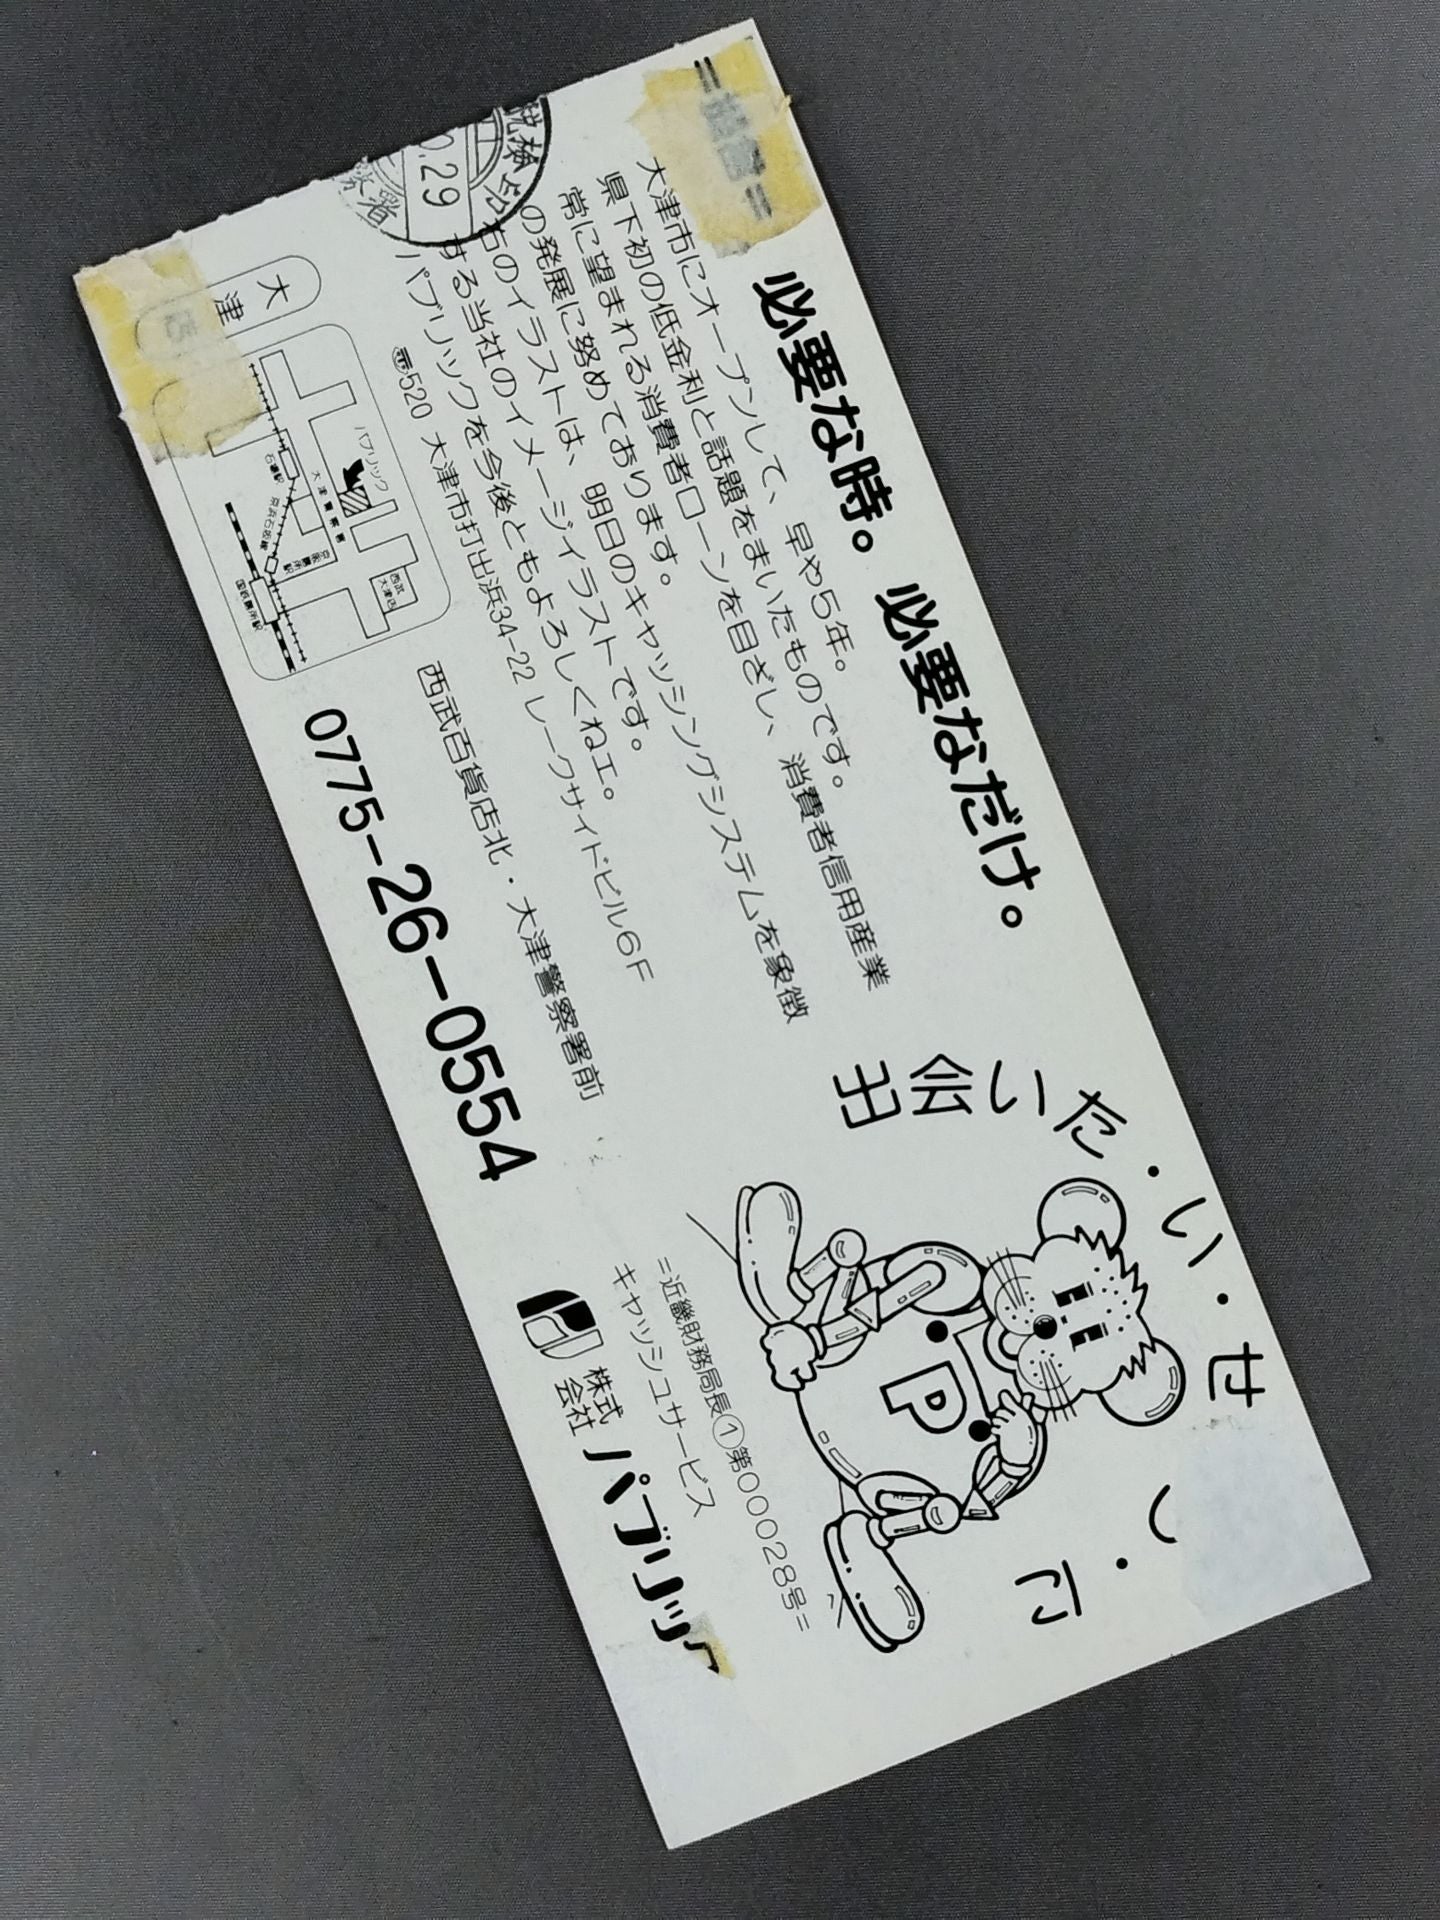 必要な時。必要なだけ。
大津市にオープンして、早や5年。
県下初の低金利と話題をまいたものです。消費者信用産業
常に望まれる消費者ローンを目ざし、
の発展に努めております。明日のキャッシングシステムを象徴
右のイラストは、
する当社のイメージイラストです。
パブリックを今後ともよろしくねェ。
〠520 大津市打出浜34-22 レークサイドビル6F
西武百貨店北・大津警察署前
0775-26-0554
大津
店
パブリック
大津警察署
西武大津店
石場駅
京阪石坂線
京阪膳所駅
国鉄膳所駅
税検印
.29
務署
出会いた・い・せ
い・に
P
=近畿財務局長①第00028号=
キャッシュサービス
株式会社 パブリック